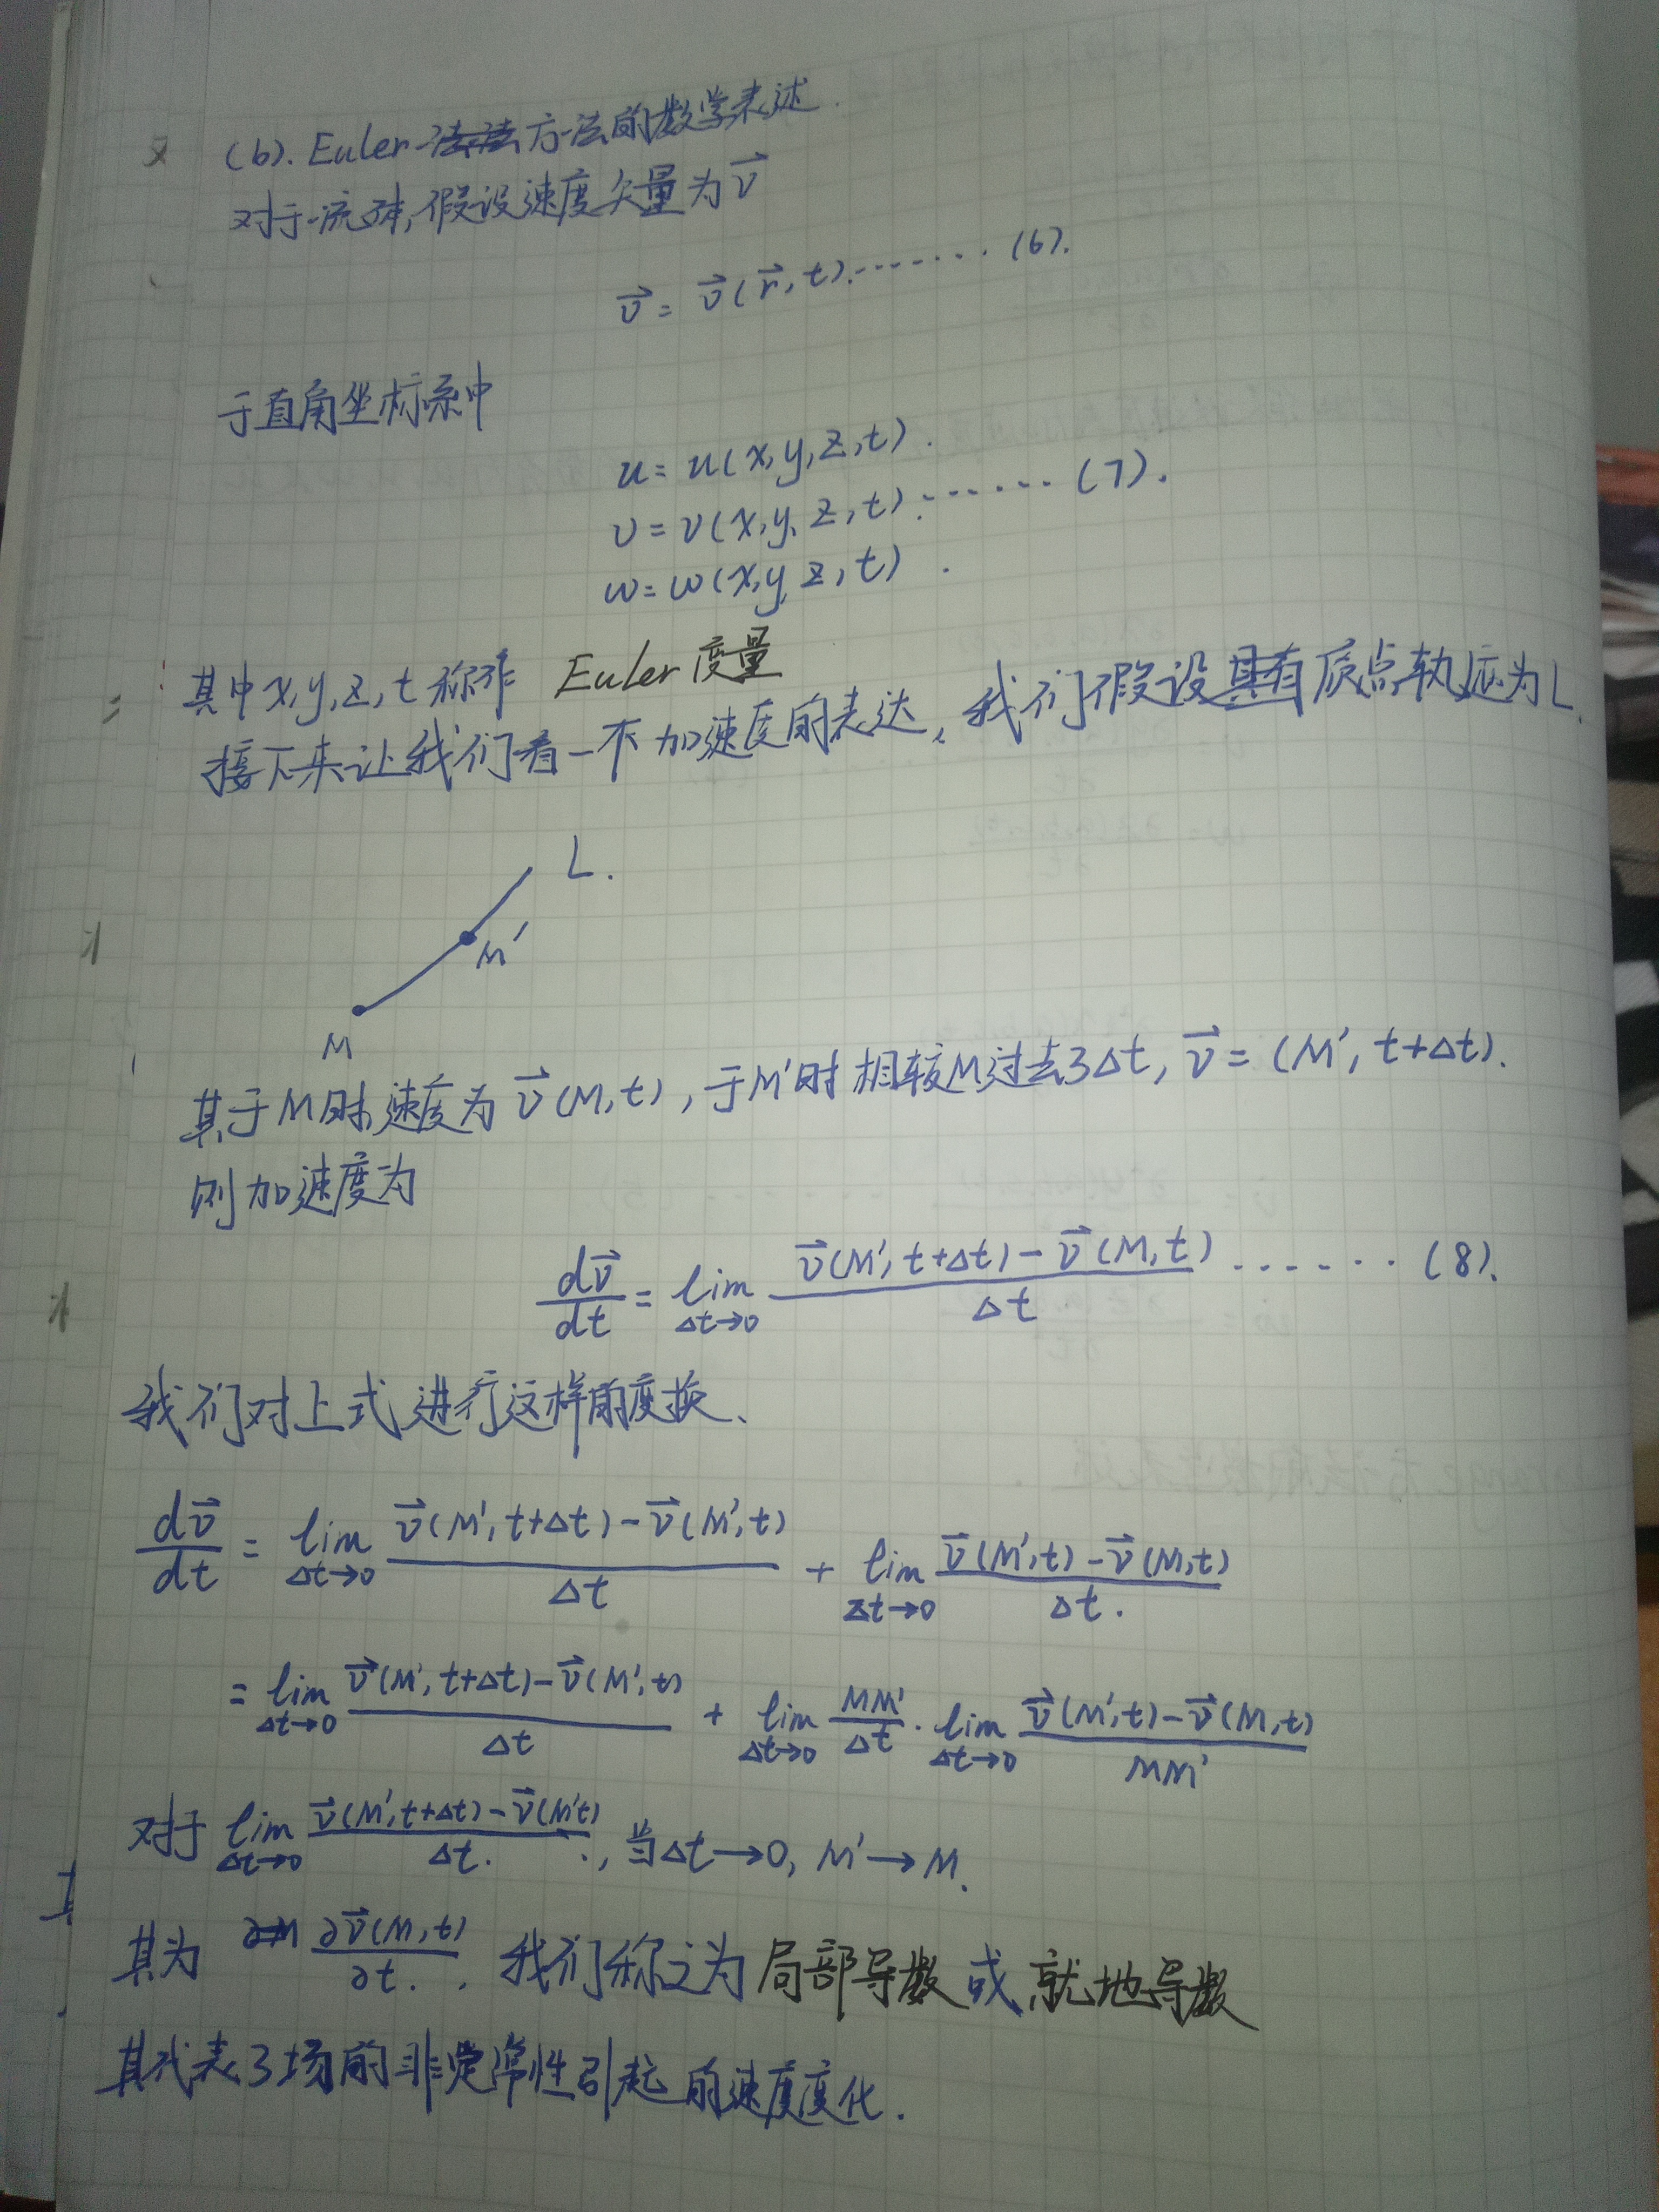 (b). Euler 方法的数学表述.
对于一流体,假设速度矢量为 $\vec{v}$
$\vec{v} = \vec{v}(\vec{r}, t)$ ········ (6).
于直角坐标系中
u = u(x,y,z,t).
v = v(x,y,z,t). ······· (7).
w = w(x,y,z,t).
其中x,y,z,t称作 Euler 度量
接下来让我们看一下加速度的表达,我们假设其有质点轨迹为L.
L.
M'
M
其于M时速度为 $\vec{v}(M,t)$,于M'时相较M过去了Δt, $\vec{v} = (M', t+Δt)$.
则加速度为
$\frac{d\vec{v}}{dt} = \lim_{Δt→0} \frac{\vec{v}(M', t+Δt) - \vec{v}(M,t)}{Δt}$ ······· (8).
我们对上式进行这样的变换、
$\frac{d\vec{v}}{dt} = \lim_{Δt→0} \frac{\vec{v}(M', t+Δt) - \vec{v}(M',t)}{Δt} + \lim_{Δt→0} \frac{\vec{v}(M',t) - \vec{v}(M,t)}{Δt.}$
$= \lim_{Δt→0} \frac{\vec{v}(M', t+Δt) - \vec{v}(M',t)}{Δt} + \lim_{Δt→0} \frac{MM'}{Δt} \cdot \lim_{Δt→0} \frac{\vec{v}(M',t) - \vec{v}(M,t)}{MM'}$
对于 $\lim_{Δt→0} \frac{\vec{v}(M', t+Δt) - \vec{v}(M't)}{Δt.}$, 当Δt→0, M'→M.
其为 $\frac{∂\vec{v}(M,t)}{∂t.}$. 我们称之为局部导数或就地导数
其代表了场的非定常性引起的速度变化.